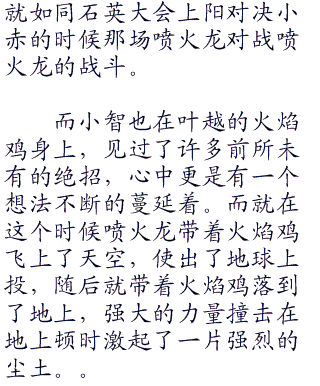 就如同石英大会上阳对决小
赤的时候那场喷火龙对战喷
火龙的战斗。
而小智也在叶越的火焰
鸡身上，见过了许多前所未
有的绝招，心中更是有一个
想法不断的蔓延着。而就在
这个时候喷火龙带着火焰鸡
飞上了天空，使出了地球上
投，随后就带着火焰鸡落到
了地上，强大的力量撞击在
地上顿时激起了一片强烈的
尘土。。